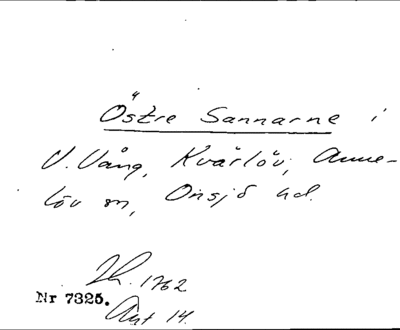 Östre Sannarne i
V. Vång, Kvärlöv, Anne-
löv sn, Onsjö hd.
Lh. 1762
Nr 7325.
Akt 14.